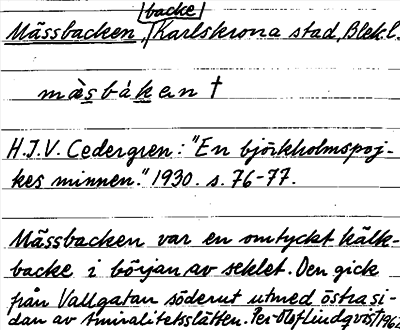 backe
Mässbacken, Karlskrona stad, Blek. l.
màsbákan †
H.J.V. Cedergren: "En björkholmspoj-
kes minnen." 1930. s. 76-77.
Mässbacken var en omtyckt kälk-
backe i början av seklet. Den gick
från Vallgatan söderut utmed östra si-
dan av Amiralitetsslätten. Per-Olof Lindqvist